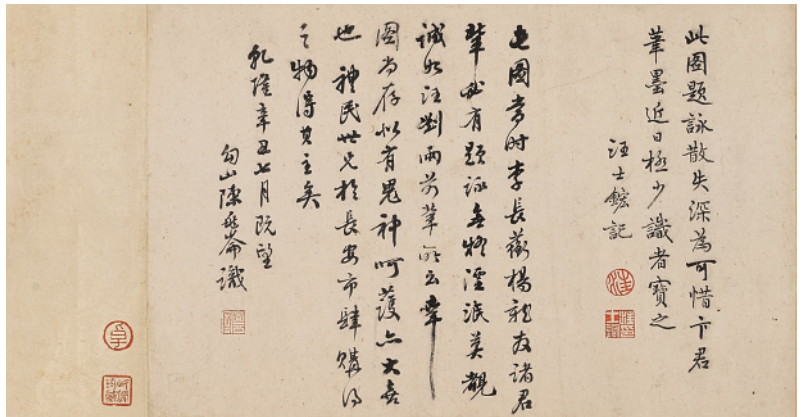 此圖題詠散失深為可惜卞君
筆墨近日極少識者寶之
汪士鋐記
此圖當時李長蘅楊龍友諸君
輩皆有題詠無將湮泯莫覩
誠如汪劉兩前輩所云幸
圖尚存似有鬼神呵護亦大奇
也 禮民世兄於長安市肆購得
之物得其主矣
乾隆辛丑七月既望
句山陳兆崙識